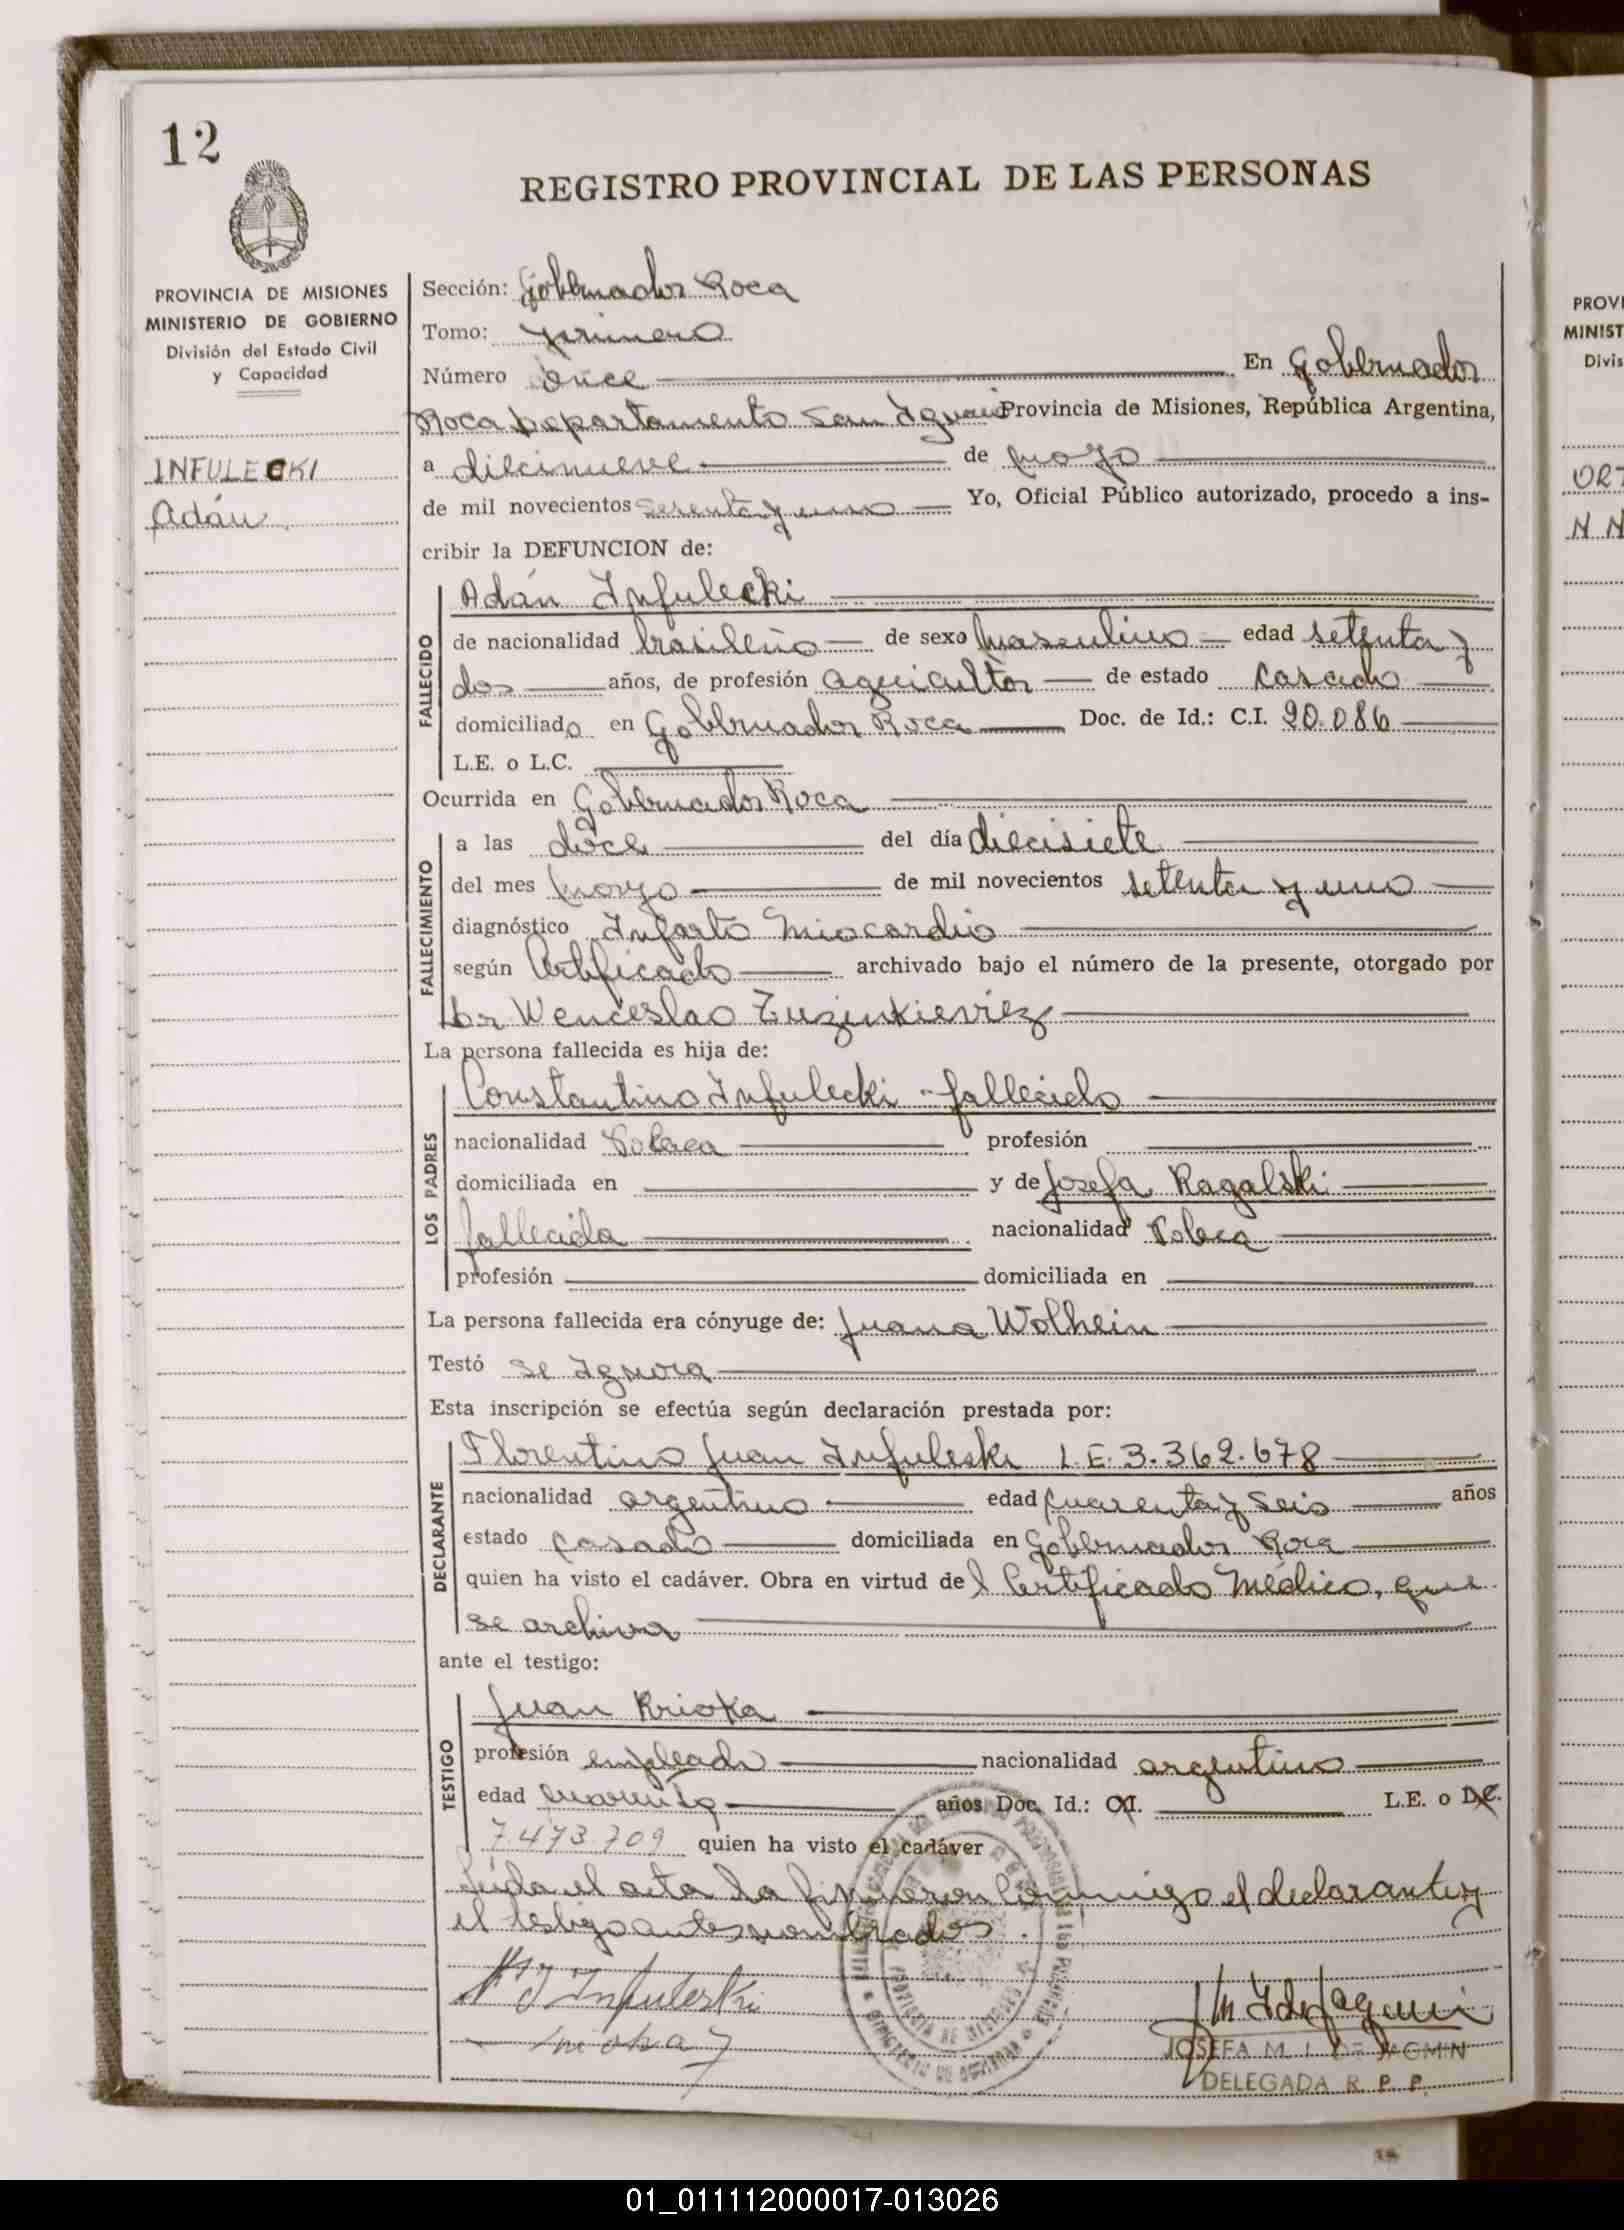 12
REGISTRO PROVINCIAL DE LAS PERSONAS
PROVINCIA DE MISIONES
MINISTERIO DE GOBIERNO
División del Estado Civil
y Capacidad
INFULECKI
Adán
Sección: Gobernador Roca
Tomo: primero
Número once En Gobernador
Roca Departamento San Ignacio Provincia de Misiones, República Argentina,
a diecinueve de mayo
de mil novecientos setenta y uno Yo, Oficial Público autorizado, procedo a ins-
cribir la DEFUNCION de:
FALLECIDO
Adán Infulecki
de nacionalidad brasileño de sexo masculino edad setenta y
dos años, de profesión agricultor de estado casado
domiciliado en Gobernador Roca Doc. de Id.: C.I. 20.086
L.E. o L.C.
Ocurrida en Gobernador Roca
FALLECIMIENTO
a las doce del día diecisiete
del mes mayo de mil novecientos setenta y uno
diagnóstico Infarto Miocardio
según Certificado archivado bajo el número de la presente, otorgado por
Dr Wenceslao Zuzinkieviez
La persona fallecida es hija de:
LOS PADRES
Constantino Infulecki - fallecido
nacionalidad Polaca profesión
domiciliada en y de Josefa Ragalski
fallecida nacionalidad Polaca
profesión domiciliada en
La persona fallecida era cónyuge de: Juana Wolhein
Testó se Ignora
Esta inscripción se efectúa según declaración prestada por:
DECLARANTE
Florentino Juan Infuleski L.E. 3.362.678
nacionalidad argentino edad cuarenta y seis años
estado casado domiciliada en Gobernador Roca
quien ha visto el cadáver. Obra en virtud del Certificado Médico, que
se archiva
ante el testigo:
TESTIGO
Juan Krioka
profesión empleado nacionalidad argentino
edad cuarenta años Doc. Id.: C.I. L.E. o L.C.
7.473.709 quien ha visto el cadáver
Leída el acta la firmaron conmigo el declarante y
el testigo antes nombrados.
F J Infuleski
JOSEFA M. I. DE JAGMIN
DELEGADA R. P. P.
PROVI
MINIST
Divis
ORT
N N
01_011112000017-013026